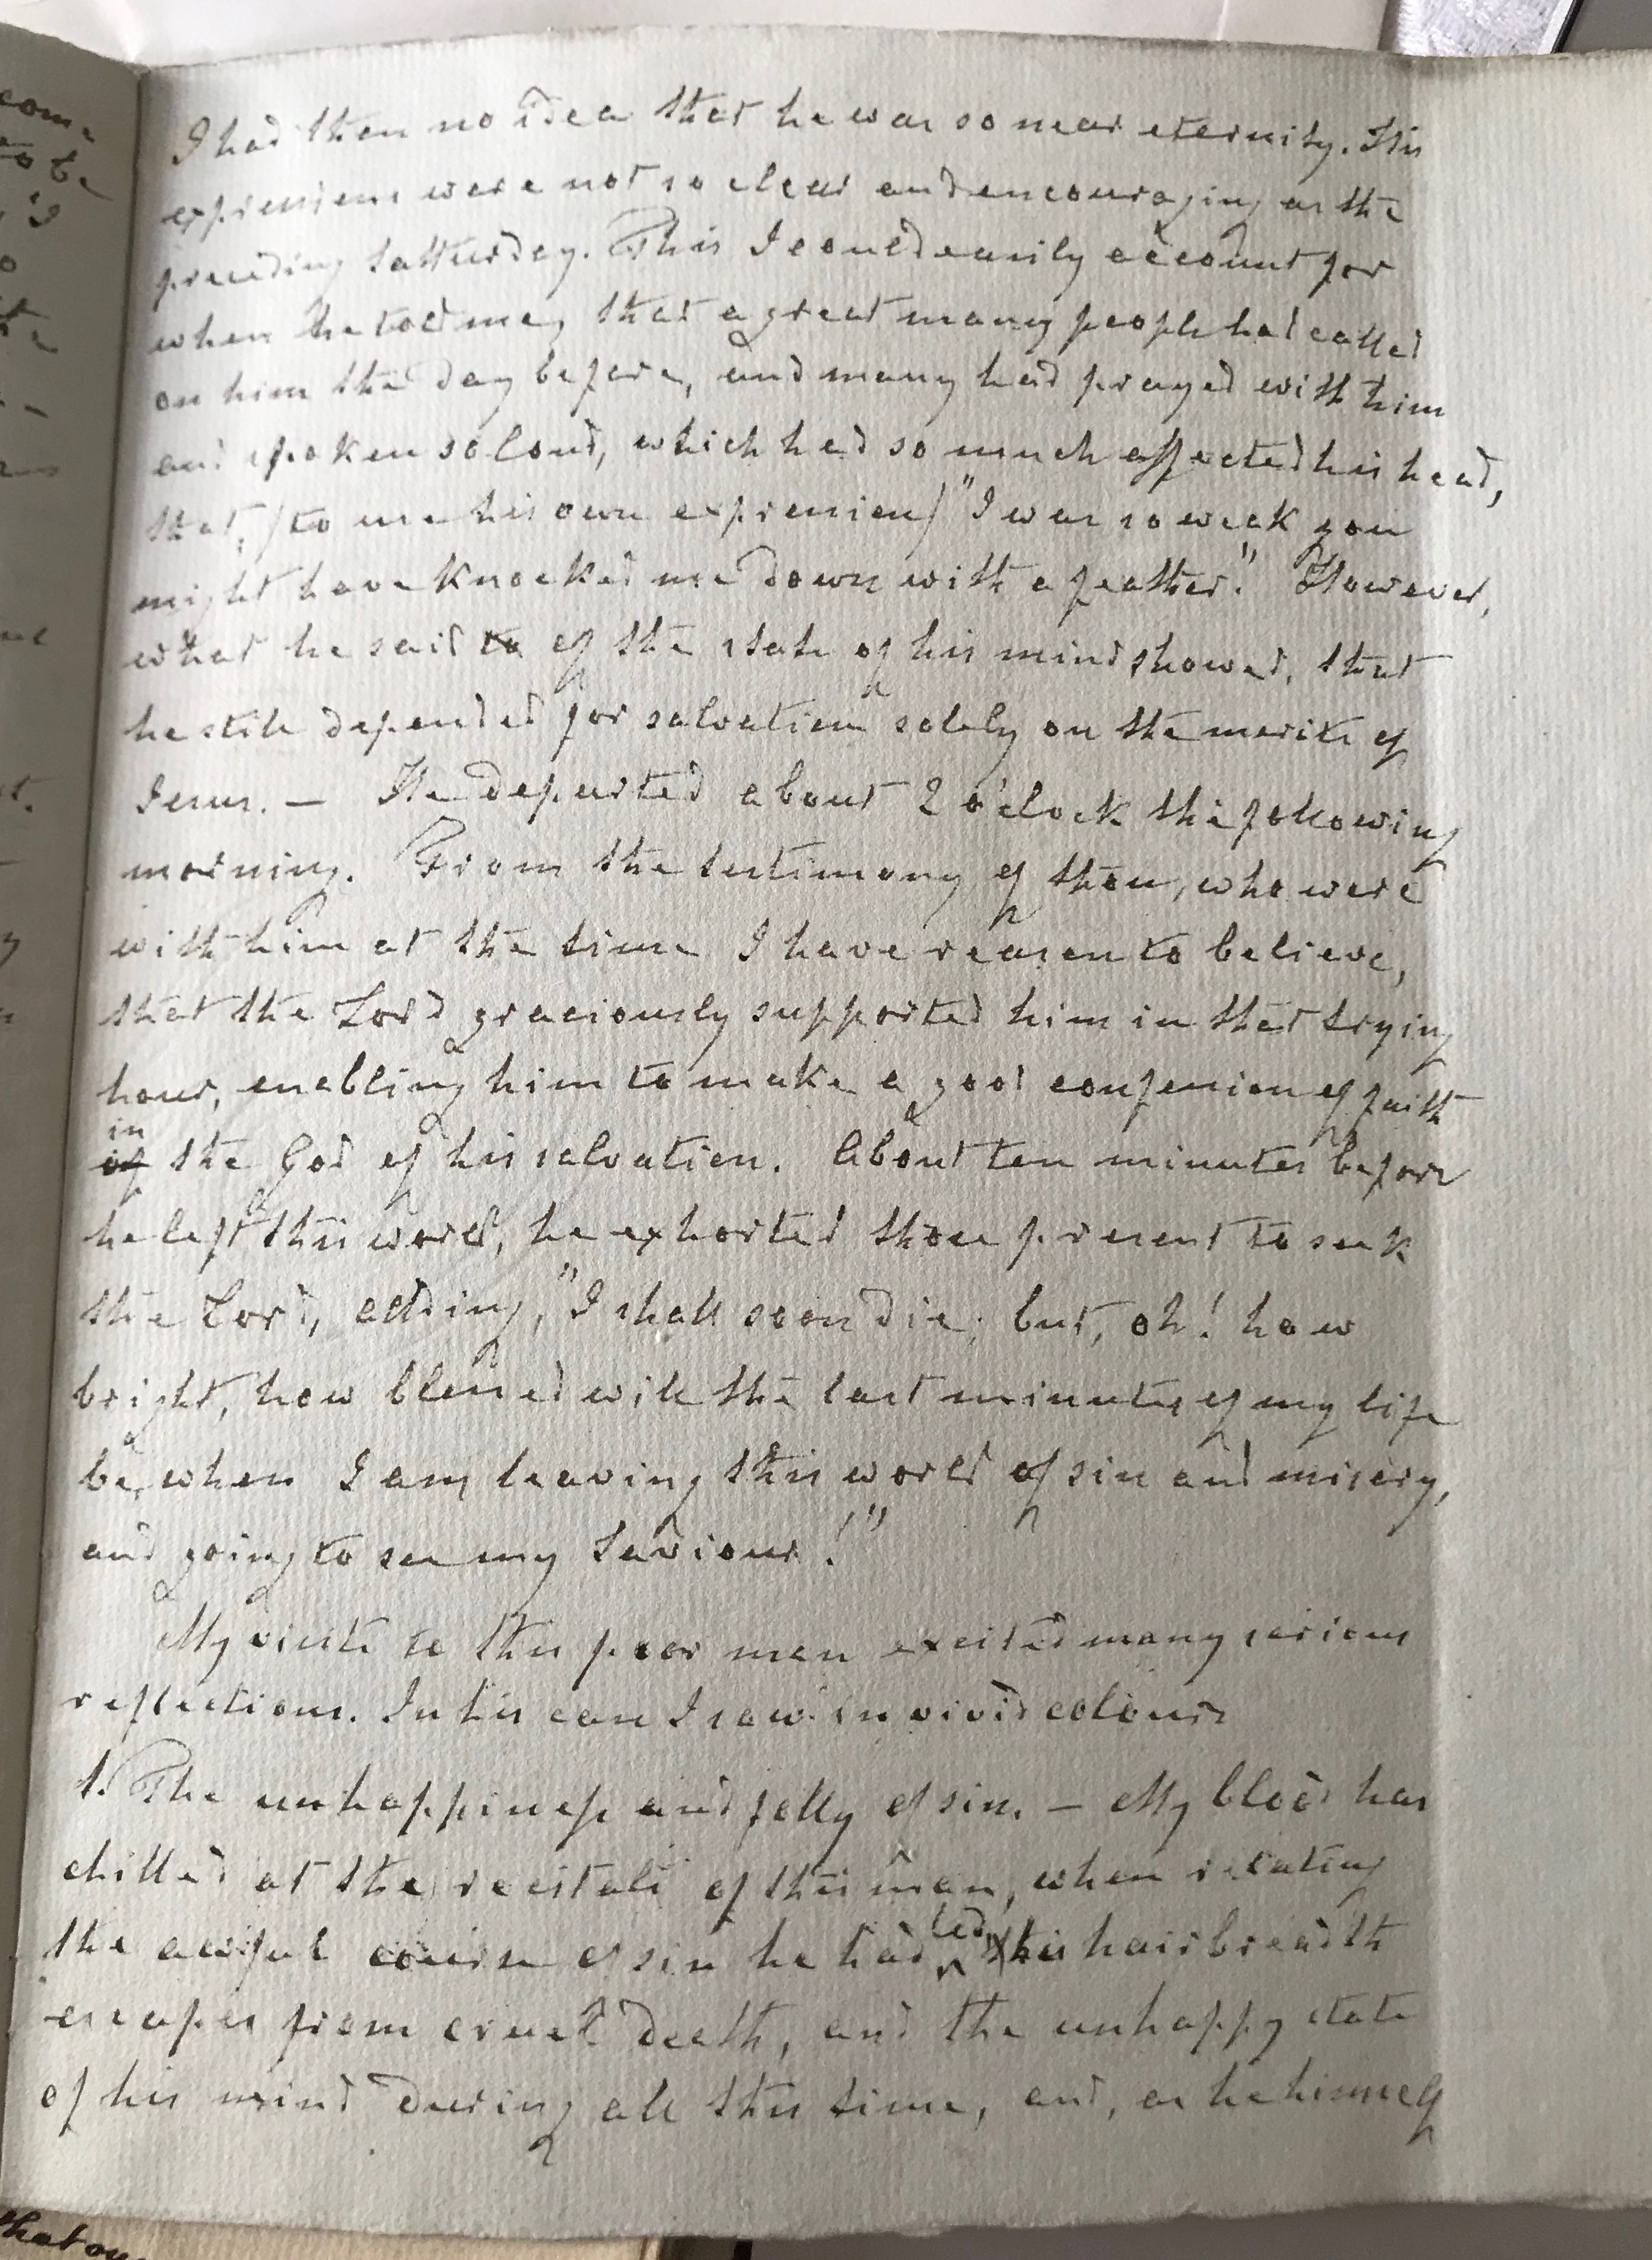 I had then no idea that he was so near eternity. His
expressions were not so clear and encouraging as the
preceding Satturday. This I could easily account for
when he told me, that a great many people had called
on him the day before, and many had prayed with him
and spoken so loud, which had so much affected his head,
that, (to use his own expression) "I was so weak you
might have knocked me down with a feather." However,
what he said to of the state of his mind showed, that
he still depended for salvation solely on the merits of
Jesus. — He departed about 2 o'clock the following
morning. From the testimony of those, who were
with him at the time I have reason to believe,
that the Lord graciously supported him in that trying
hour, enabling him to make a good confession of faith
in
of the God of his salvation. About ten minutes before
he left this world, he exhorted those present to seek
the Lord, adding, "I shall soon die; but, oh! how
bright, how blessed will the last minutes of my life
be, when I am leaving this world of sin and misery,
and going to see my Saviour!"
My visits to this poor man excited many serious
reflections. In his case I saw in vivid colours
1. The unhappiness and folly of sin. — My blood has
chilled at the recitals of this man, when relating
the awful course of sin he had led, his hairbreadth
escapes from cruel death, and the unhappy state
of his mind during all this time, and, as he himself
com-
to be
I
that